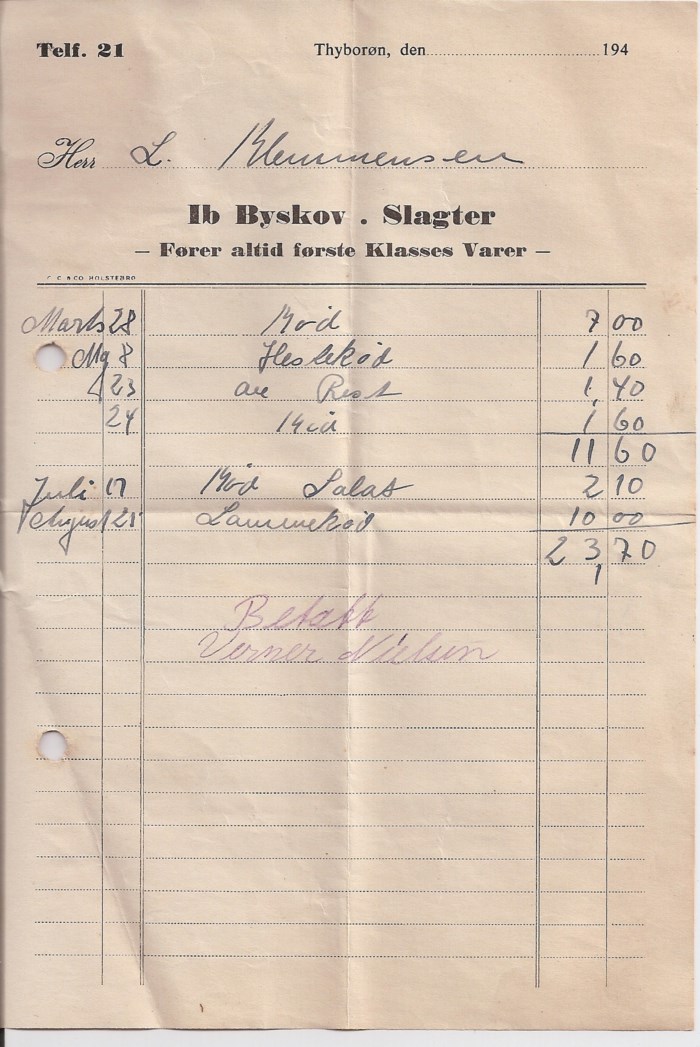 Telf. 21 Thyborøn, den 194
Herr L. Klemmensen
Ib Byskov . Slagter
— Fører altid første Klasses Varer —
& CO. HOLSTEBRO
Marts 28 Kød 7 00
Maj 8 Hestekød 1 60
23 Rest 1 40
24 Kød 1 60
11 60
Juli 17 Kød Salat 2 10
August 21 Lammekød 10 00
23 70
1
Betalt
Verner Nielsen